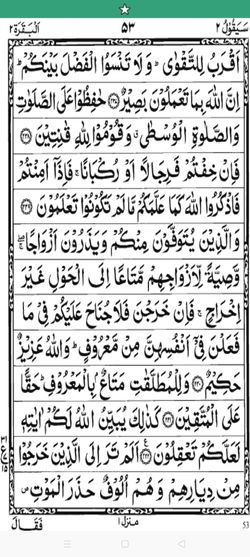 سَيَقُوۡلُ ٢ ٥٣ اَلۡبَقَرَة ٢
اَقۡرَبُ لِلتَّقۡوٰى ؕ وَلَا تَنۡسَوُا الۡفَضۡلَ بَيۡنَكُمۡ ؕ
اِنَّ اللّٰهَ بِمَا تَعۡمَلُوۡنَ بَصِيۡرٌ ﴿۲۳۷﴾ حٰفِظُوۡا عَلَى الصَّلَوٰتِ
وَالصَّلٰوةِ الۡوُسۡطٰى وَقُوۡمُوۡا لِلّٰهِ قٰنِتِيۡنَ ﴿۲۳۸﴾
فَاِنۡ خِفۡتُمۡ فَرِجَالًا اَوۡ رُكۡبَانًا ۚ فَاِذَآ اَمِنۡتُمۡ
فَاذۡكُرُوا اللّٰهَ كَمَا عَلَّمَكُمۡ مَّا لَمۡ تَكُوۡنُوۡا تَعۡلَمُوۡنَ ﴿۲۳۹﴾
وَالَّذِيۡنَ يُتَوَفَّوۡنَ مِنۡكُمۡ وَيَذَرُوۡنَ اَزۡوَاجًا ۖۚ
وَّصِيَّةً لِّاَزۡوَاجِهِمۡ مَّتَاعًا اِلَى الۡحَوۡلِ غَيۡرَ
اِخۡرَاجٍ ۚ فَاِنۡ خَرَجۡنَ فَلَا جُنَاحَ عَلَيۡكُمۡ فِىۡ مَا
فَعَلۡنَ فِىۡٓ اَنۡفُسِهِنَّ مِنۡ مَّعۡرُوۡفٍ ؕ وَاللّٰهُ عَزِيۡزٌ
حَكِيۡمٌ ﴿۲۴۰﴾ وَلِلۡمُطَلَّقٰتِ مَتَاعٌۢ بِالۡمَعۡرُوۡفِ ؕ حَقًّا
عَلَى الۡمُتَّقِيۡنَ ﴿۲۴۱﴾ كَذٰلِكَ يُبَيِّنُ اللّٰهُ لَكُمۡ اٰيٰتِهٖ
لَعَلَّكُمۡ تَعۡقِلُوۡنَ ﴿۲۴۲﴾ اَلَمۡ تَرَ اِلَى الَّذِيۡنَ خَرَجُوۡا
مِنۡ دِيَارِهِمۡ وَهُمۡ اُلُوۡفٌ حَذَرَ الۡمَوۡتِ
منزل ١
فَقَالَ
53